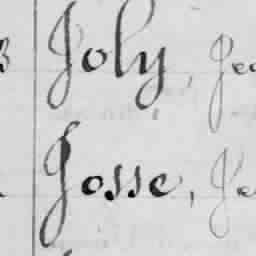 Joly, Je
Josse, Je